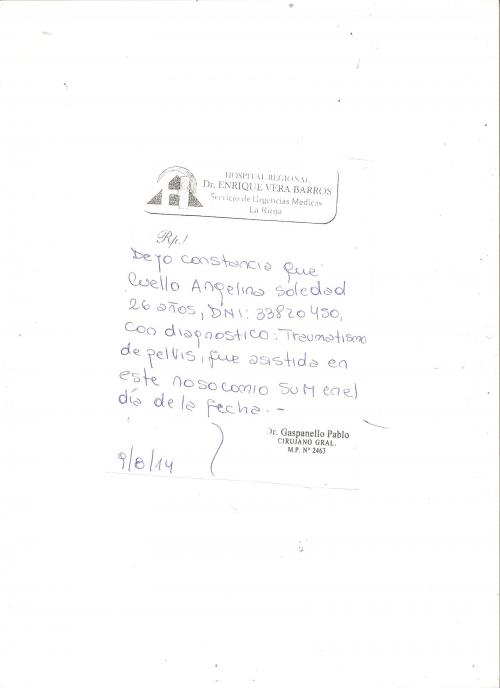 HOSPITAL REGIONAL
Dr. ENRIQUE VERA BARROS
Servicio de Urgencias Medicas
La Rioja
Rp./
Dejo constancia que
Cuello Angelina Soledad
26 años, DNI: 33820450,
con diagnostico: Traumatismo
de pelvis, fue asistida en
este nosocomio SUM en el
día de la fecha. -
Dr. Gaspanello Pablo
CIRUJANO GRAL.
M.P. Nº 2463
9/8/14